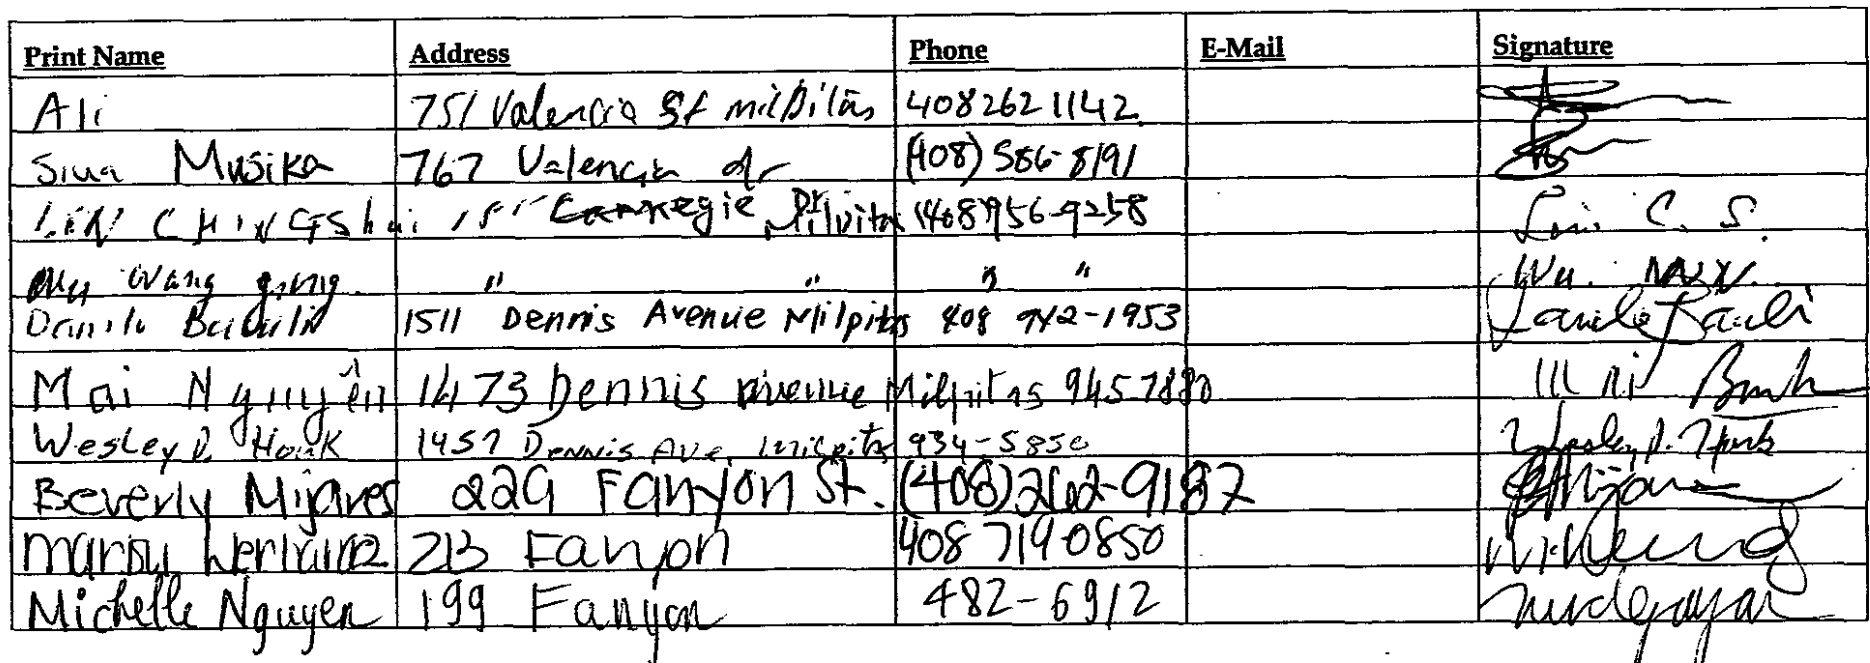 Print Name Address Phone E-Mail Signature
Ali 751 Valencia St milpitas 4082621142
Siua Musika 767 Valencia dr (408) 586-8191
LIN CHING Shui Carnegie Dr. Milpita (408)956-9258 C. S.
Wang " " " " Wu.
Danilo 1511 Dennis Avenue Milpitas 408 942-1953
Mai Nguyên 1473 Dennis Avenue Milpitas 9457880
Wesley D. Houk 1457 Dennis Ave. Milpitas 934-5850 Wesley D. Houk
Beverly Mijares 229 Fanyon St. (408)262-9187
213 Fanyon 408 719 0850
Michelle Nguyen 199 Fanyon 482-6912